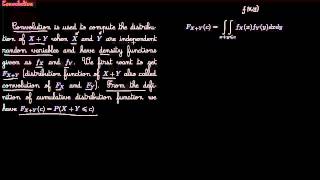 Convolution
Convolution is used to compute the distribu-
tion of X + Y when X and Y are independent
random variables and have density functions
given as fX and fY. We first want to get
FX+Y (distribution function of X + Y also called
convolution of FX and FY). From the defi-
nition of cumulative distribution function we
have FX+Y(c) = P(X + Y ⩽ c)
FX+Y(c) = ∬x+y⩽c fX(x)fY(y)dxdy